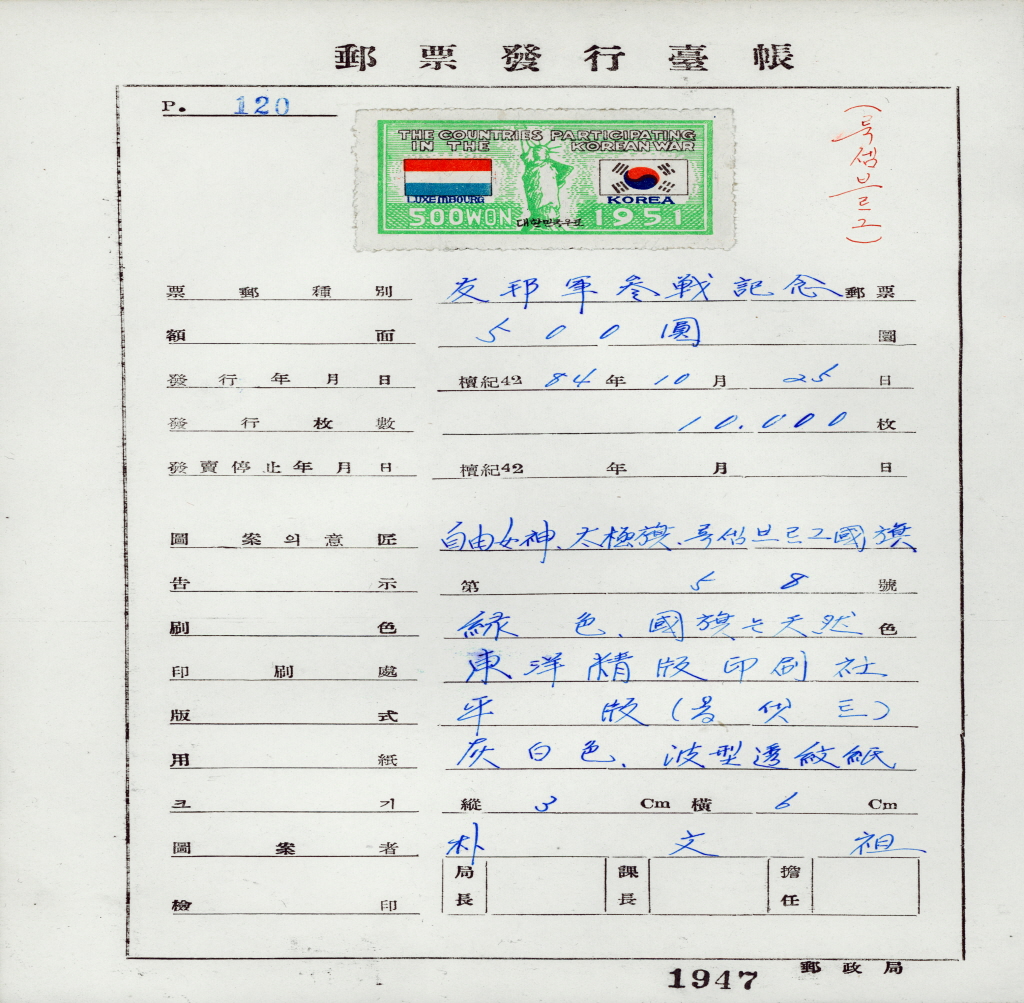 郵票發行臺帳
P. 120
(룩셈부르그)
THE COUNTRIES PARTICIPATING
IN THE KOREAN WAR
LUXEMBOURG KOREA
500WON 대한민국우표 1951
票郵種別 友邦軍参戰記念郵票
額面 500圓 圜
發行年月日 檀紀4284年10月25日
發行枚數 10.000枚
發賣停止年月日 檀紀42 年 月 日
圖案의意匠 自由女神、太極旗、룩셈브르그國旗
告示 第58號
刷色 緑色、國旗는天然色
印刷處 東洋精版印刷社
版式 平版(옵셋트)
用紙 灰白色、波型透紋紙
크기 縱3Cm 橫6Cm
圖案者 朴文祖
檢印 局長 課長 擔任
1947 郵政局